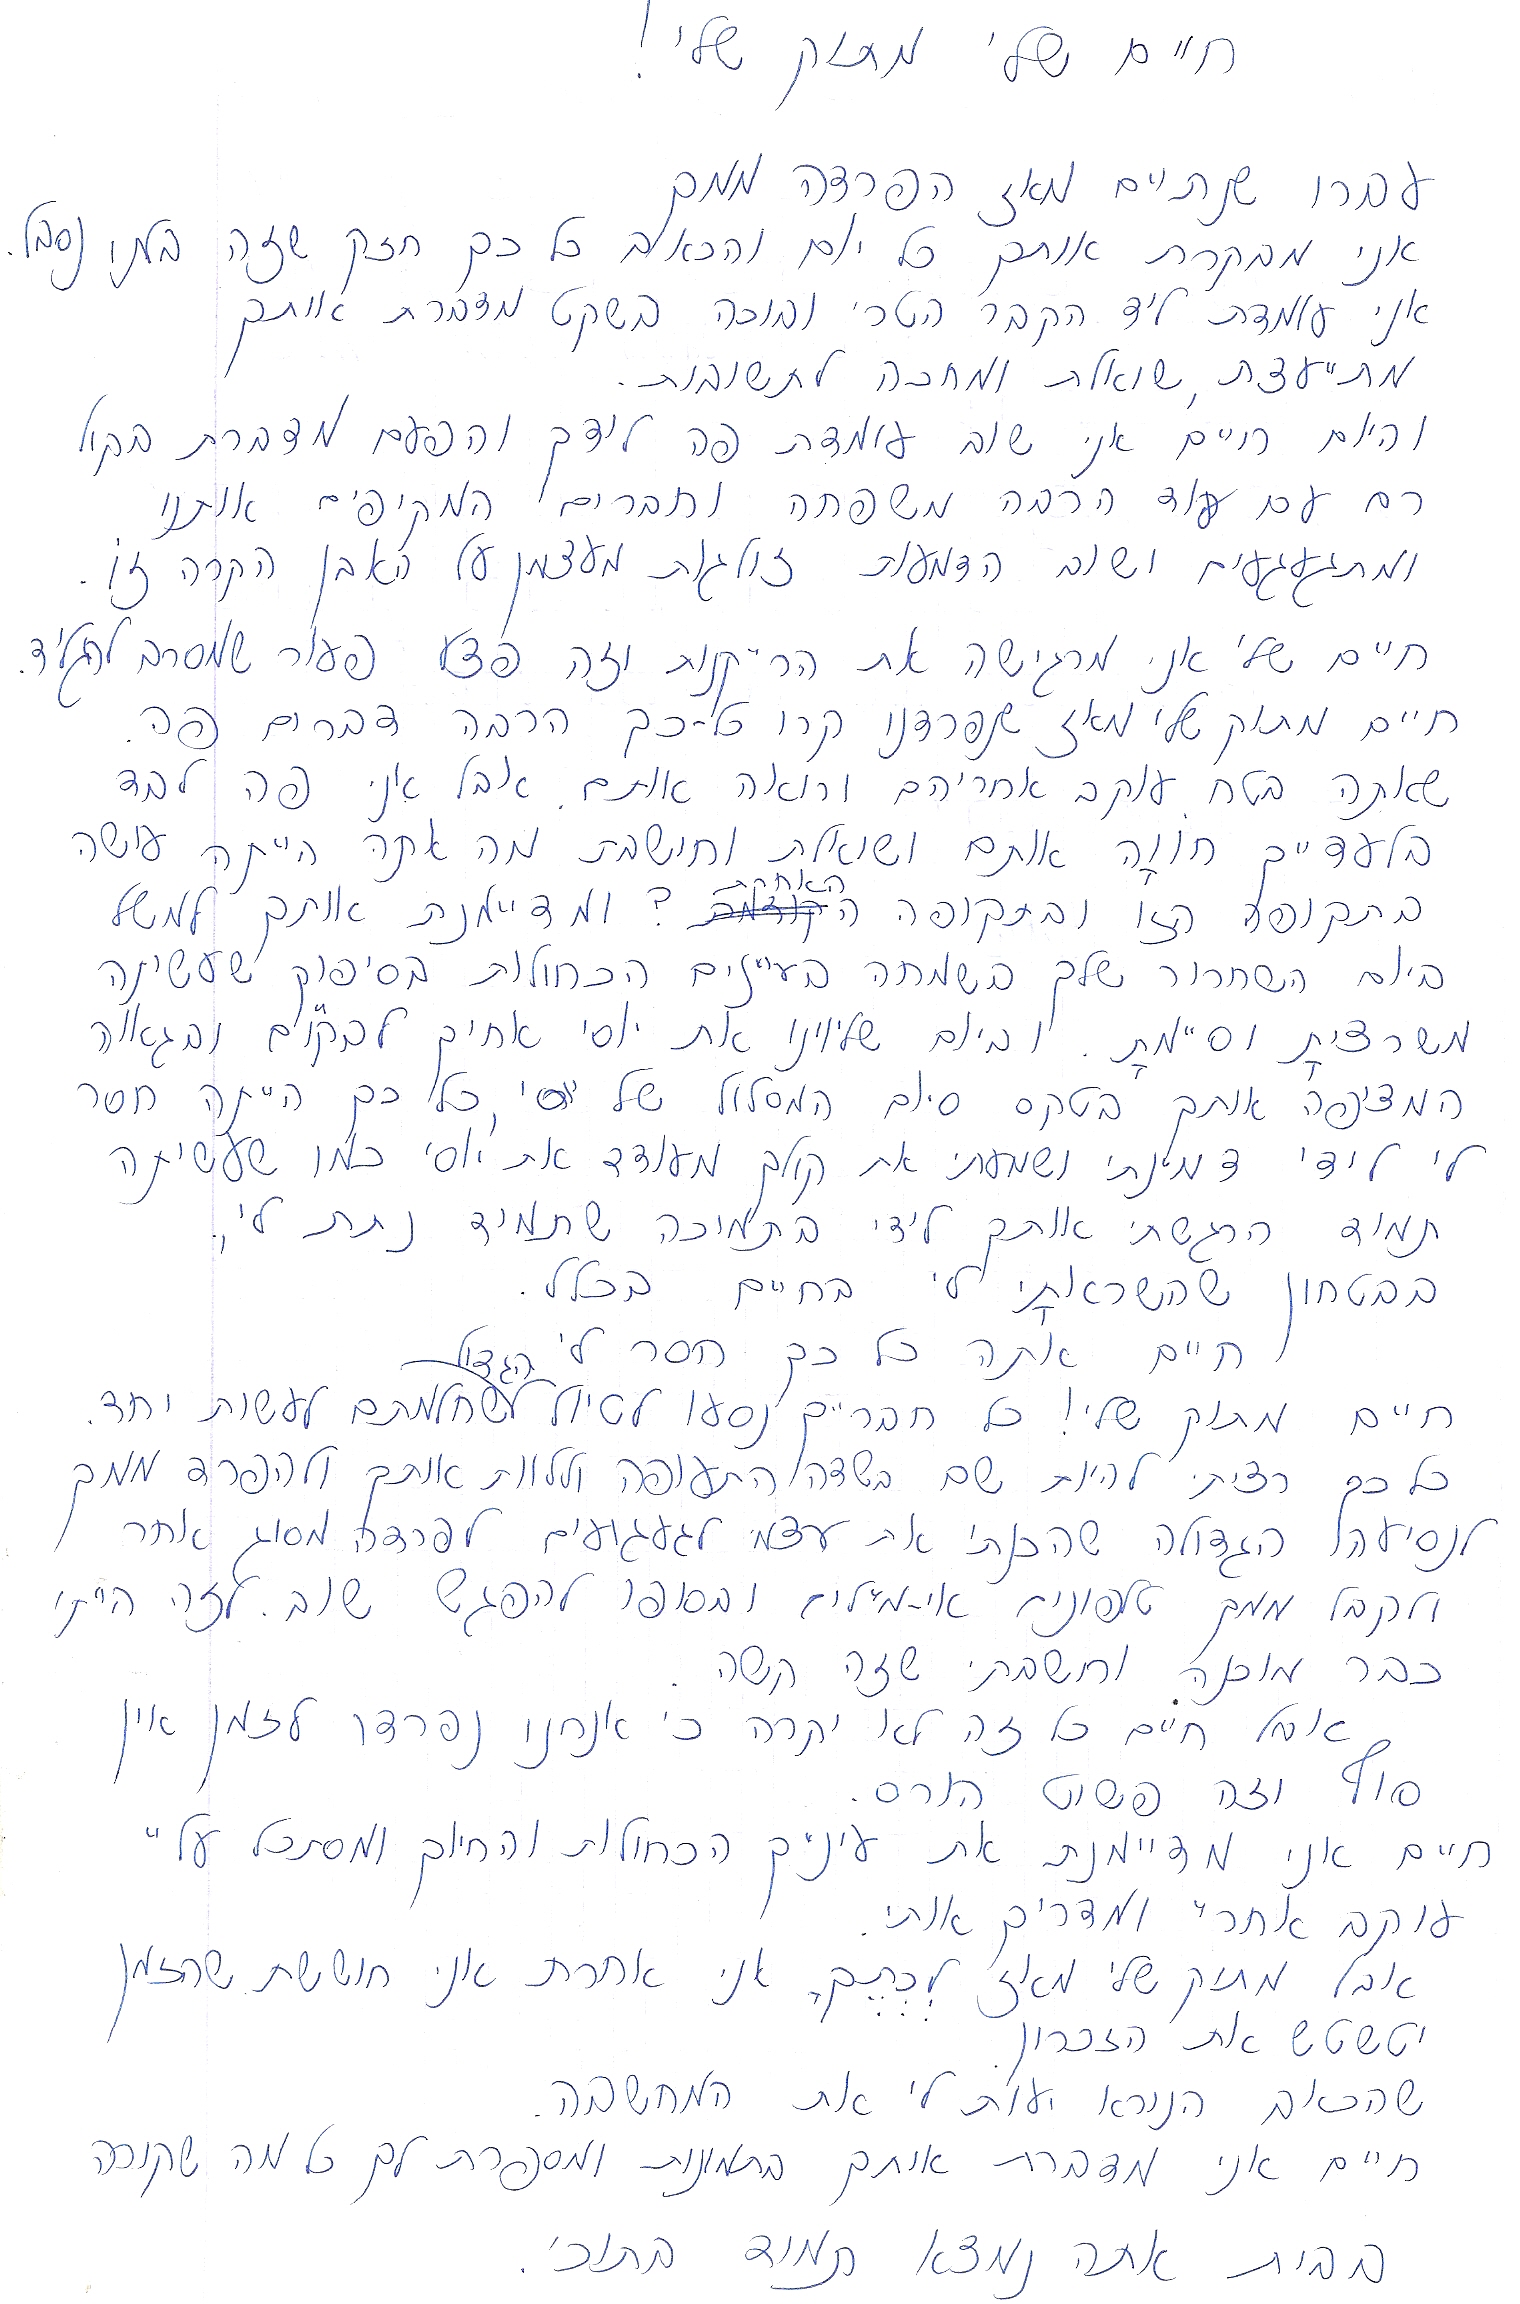 חיים שלי מתוק שלי!
עברו שנתיים מאז הפרדה ממך
אני מבקרת אותך כל יום והכאב כל כך חזק שזה בלתי נסבל.
אני עומדת ליד הקבר הטרי ובוכה בשקט מדברת אותך
מתייעצת, שואלת ומחכה לתשובות.
והיום חיים אני שוב עומדת פה לידך והפעם מדברת בקול
רם עם עוד הרבה משפחה וחברים המקיפים אותנו
ומתגעגעים ושוב הדמעות זולגות מעצמן על האבן הקרה זו.
חיים שלי אני מרגישה את הריקנות וזה פצע פעור שמסרב להגליד.
חיים מתוק שלי מאז שנפרדנו קרו כל-כך הרבה דברים פה.
שאתה בטח עוקב אחריהם ורואה אותם. אבל אני פה לבד
בלעדייך חווָה אותם ושואלת וחושבת מה אתה היית עושה
בתקופה הזו ובתקופה האחרת? ומדיימנת אותך למשל
ביום השחרור שלך בשמחה בעיינים הכחולות בסיפוק שעשיתה
משרציתָ וסיימתָ. וביום שליוינו את יוסי אחיך לבקו"ם ובגאווה
המציפה אותך בטקס סיום המסלול של יוסי, כל כך הייתה חסר
לי לידי דמינתי ושמעתי את קולך מעודד את יוסי כמו שעשיתה
תמיד הרגשתי אותך לידי בתמיכה שתמיד נתת לי,
בבטחון שהשראתָי לי בחיים בכלל.
חיים אתה כל כך חסר לי
חיים מתוק שלי! כל חברייך נסעו לטיול הגדול שחלמתם לעשות יחד.
כל כך רציתי להיות שם בשדה התעופה וללוות אותך ולהפרד ממך
לנסיעה הגדולה שהכנתי את עצמי לגעגועים לפרדה מסוג אחר
ולקבל ממך טלפונים אי-מיילים ובסופו להפגש שוב. לזה הייתי
כבר מוכנה וחשבתי שזה קשה.
אבל חיים כל זה לא יקרה כי אנחנו נפרדנו לזמן אין
סוף וזה פשוט הורס.
חיים אני מדיימנת את עיניך הכחולות והחיוך ומסתכל עליי
עוקב אחריי ומדריך אותי.
אבל מתוק שלי מאז לֶכְתְּךָ, אני אחרת אני חוששת שהזמן
יטשטש את הזכרון.
שהכאב הנורא יעוות לי את המחשבה.
חיים אני מדברת אותך בתמונות ומספרת לך כל מה שקורה
בבית אתה נמצא תמיד בתוכי.